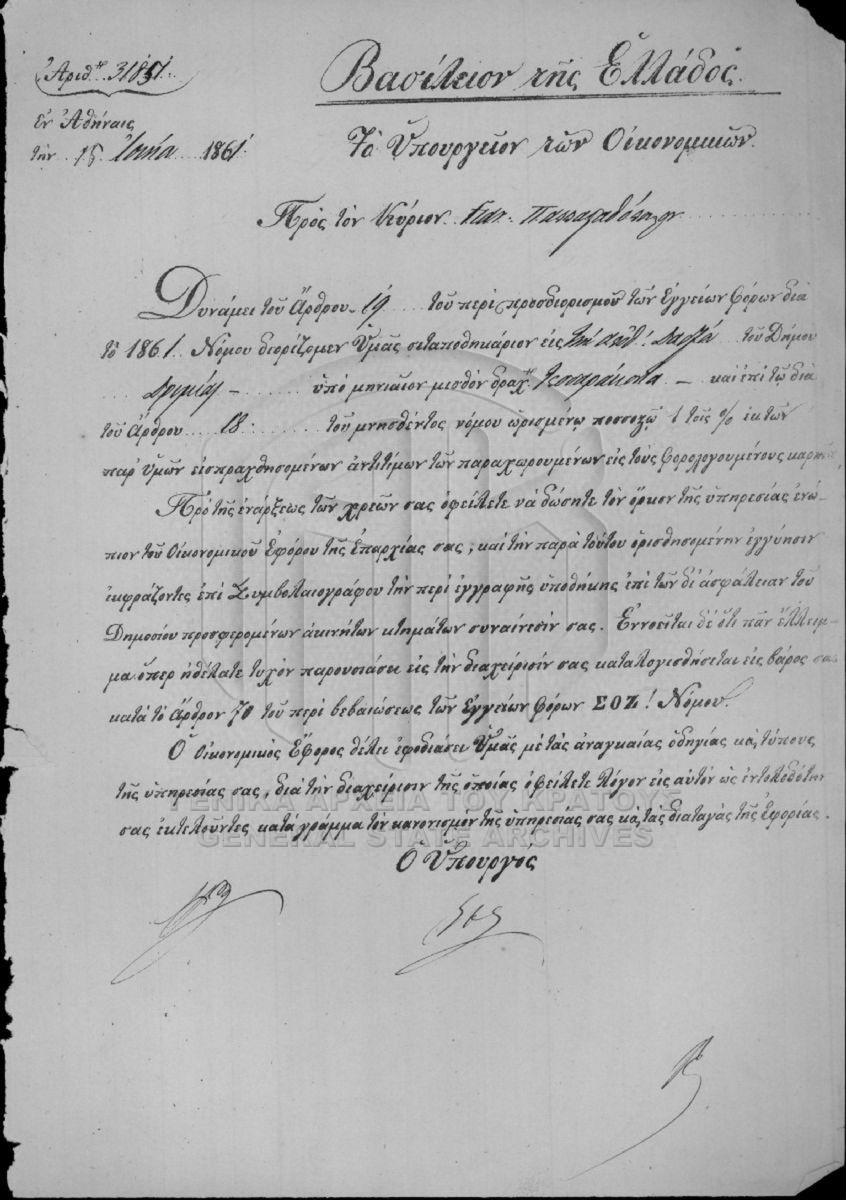 Ἀριθ. 31851.
Βασίλειον τῆς Ἑλλάδος.
Ἐν Ἀθήναις
τὴν 15 1861
Τὸ Ὑπουργεῖον τῶν Οἰκονομικῶν.
Πρὸς τὸν Κύριον
Δυνάμει τοῦ Ἄρθρου 19 τοῦ περὶ προσδιορισμοῦ τῶν Ἐγγείων Φόρων διὰ
τὸ 1861 Νόμου διορίζομεν Ὑμᾶς σιταποθηκάριον εἰς τοῦ Δήμου
ὑπὸ μηνιαῖον μισθὸν δραχ. τεσσαράκοντα — καὶ ἐπὶ τῷ διὰ
τοῦ Ἄρθρου 18 τοῦ μνησθέντος νόμου ὡρισμένῳ ποσοστῷ 1 τοῖς % ἐκ τῶν
παρ' Ὑμῶν εἰσπραχθησομένων ἀντιτίμων τῶν παραχωρουμένων εἰς τοὺς φορολογουμένους
Πρὸ τῆς ἐνάρξεως τῶν χρεῶν σας ὀφείλετε νὰ δώσητε τὸν ὅρκον τῆς ὑπηρεσίας ἐνώ-
πιον τοῦ Οἰκονομικοῦ Ἐφόρου τῆς Ἐπαρχίας σας, καὶ τὴν παρὰ τούτου ὁρισθησομένην ἐγγύησιν
ἐκφράζοντες ἐπὶ Συμβολαιογράφου τὴν περὶ ἐγγραφῆς ὑποθήκης ἐπὶ τῶν δι' ἀσφάλειαν τοῦ
Δημοσίου προσφερομένων ἀκινήτων κτημάτων συναίνεσίν σας. Ἐννοεῖται δὲ ὅτι πᾶν ἔλλειμ-
μα ὅπερ ἠθέλατε τυχὸν παρουσιάσει εἰς τὴν διαχείρισίν σας καταλογισθήσεται εἰς βάρος σας
κατὰ τὸ Ἄρθρον 70 τοῦ περὶ βεβαιώσεως τῶν Ἐγγείων φόρων ΣΟΖ! Νόμου.
Ὁ Οἰκονομικὸς Ἔφορος θέλει ἐφοδιάσει Ὑμᾶς μὲ τὰς ἀναγκαίας ὁδηγίας κ. τύπους
τῆς ὑπηρεσίας σας, διὰ τὴν διαχείρισιν τῆς ὁποίας ὀφείλετε λόγον εἰς αὐτὸν ὡς ἐντολοδότην
σας ἐκτελοῦντες κατὰ γράμμα τὸν κανονισμὸν τῆς ὑπηρεσίας σας κ. τὰς διαταγὰς τῆς Ἐφορίας.
ΓΕΝΙΚΑ ΑΡΧΕΙΑ ΤΟΥ ΚΡΑΤΟΥΣ
GENERAL STATE ARCHIVES
Ὁ Ὑπουργός